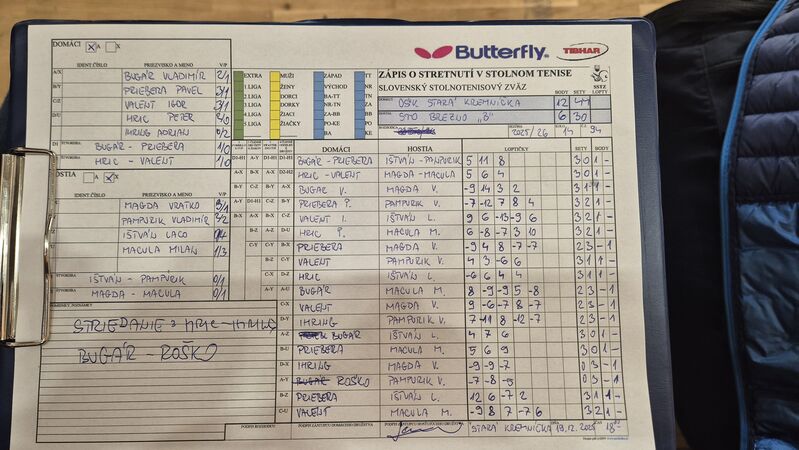 DOMÁCI A X
Butterfly TIBHAR
IDENT.ČÍSLO PRIEZVISKO A MENO V/P
ZÁPIS O STRETNUTÍ V STOLNOM TENISE
SLOVENSKÝ STOLNOTENISOVÝ ZVÄZ
SSTZ
BODY SETY LOPTY
A/X BUGÁR VLADIMÍR 2/1
B/Y PRIEBERA PAVEL 3/1
C/Z VALENT IGOR 3/1
D/U HRIC PETER 2/0
IHRING ADRIAN 0/2
D1 ŠTVORHRA BUGÁR - PRIEBERA 1/0
HRIC - VALENT 1/0
EXTRA MUŽI ZÁPAD TT
1.LIGA ŽENY VÝCHOD NR
2.LIGA DORCI BA-TT TN
3.LIGA DORKY NR-TN ZA
4.LIGA ŽIACI ZA-BB BB
5.LIGA ŽIAČKY PO-KE PO
BA KE
DOMÁCI OŠK STARÁ KREMNIČKA 12 44
HOSTIA STO BREZNO "B" 6 30
2025/26 14 94
HOSTIA A X
IDENT.ČÍSLO PRIEZVISKO A MENO V/P
MAGDA VRATKO 3/1
PAMPURIK VLADIMÍR 3/2
IŠTVÁN LACO 0/4
MACULA MILAN 1/3
IŠTVÁN - PAMPURIK 0/1
MAGDA - MACULA 0/1
DOMÁCI HOSTIA LOPTIČKY SETY BODY
BUGÁR - PRIEBERA IŠTVÁN - PAMPURIK 5 11 8 3 0 1 -
HRIC - VALENT MAGDA - MACULA 5 6 4 3 0 1 -
BUGÁR V. MAGDA V. -9 14 3 2 3 1 1 -
PRIEBERA P. PAMPURIK V. -7 -12 7 8 4 3 2 1 -
VALENT I. IŠTVÁN L. 9 6 -13 -9 6 3 2 1 -
HRIC P. MACULA M. 6 -8 -7 3 10 3 2 1 -
PRIEBERA MAGDA V. -9 4 8 -7 -7 2 3 - 1
VALENT PAMPURIK V. 4 3 -6 6 3 1 1 -
HRIC IŠTVÁN L. -6 6 4 4 3 1 1 -
BUGÁR MACULA M. 8 -9 -9 5 -8 2 3 - 1
VALENT MAGDA V. 9 -6 -7 8 -7 2 3 - 1
IHRING PAMPURIK V. -7 11 8 -12 -7 2 3 - 1
BUGÁR IŠTVÁN L. 4 7 6 3 0 1 -
PRIEBERA MACULA M. 5 6 9 3 0 1 -
IHRING MAGDA V. -9 -9 -7 0 3 - 1
ROŠKO PAMPURIK V. -7 -8 -5 0 3 - 1
PRIEBERA IŠTVÁN L. 12 6 -7 2 3 1 1 -
VALENT MACULA M. -9 8 7 -7 6 3 2 1 -
STRIEDANIE : HRIC - IHRING
BUGÁR - ROŠKO
PODPIS ROZHODCU PODPIS ZÁSTUPCU DOMÁCEHO DRUŽSTVA
STARÁ KREMNIČKA 19.12.2025